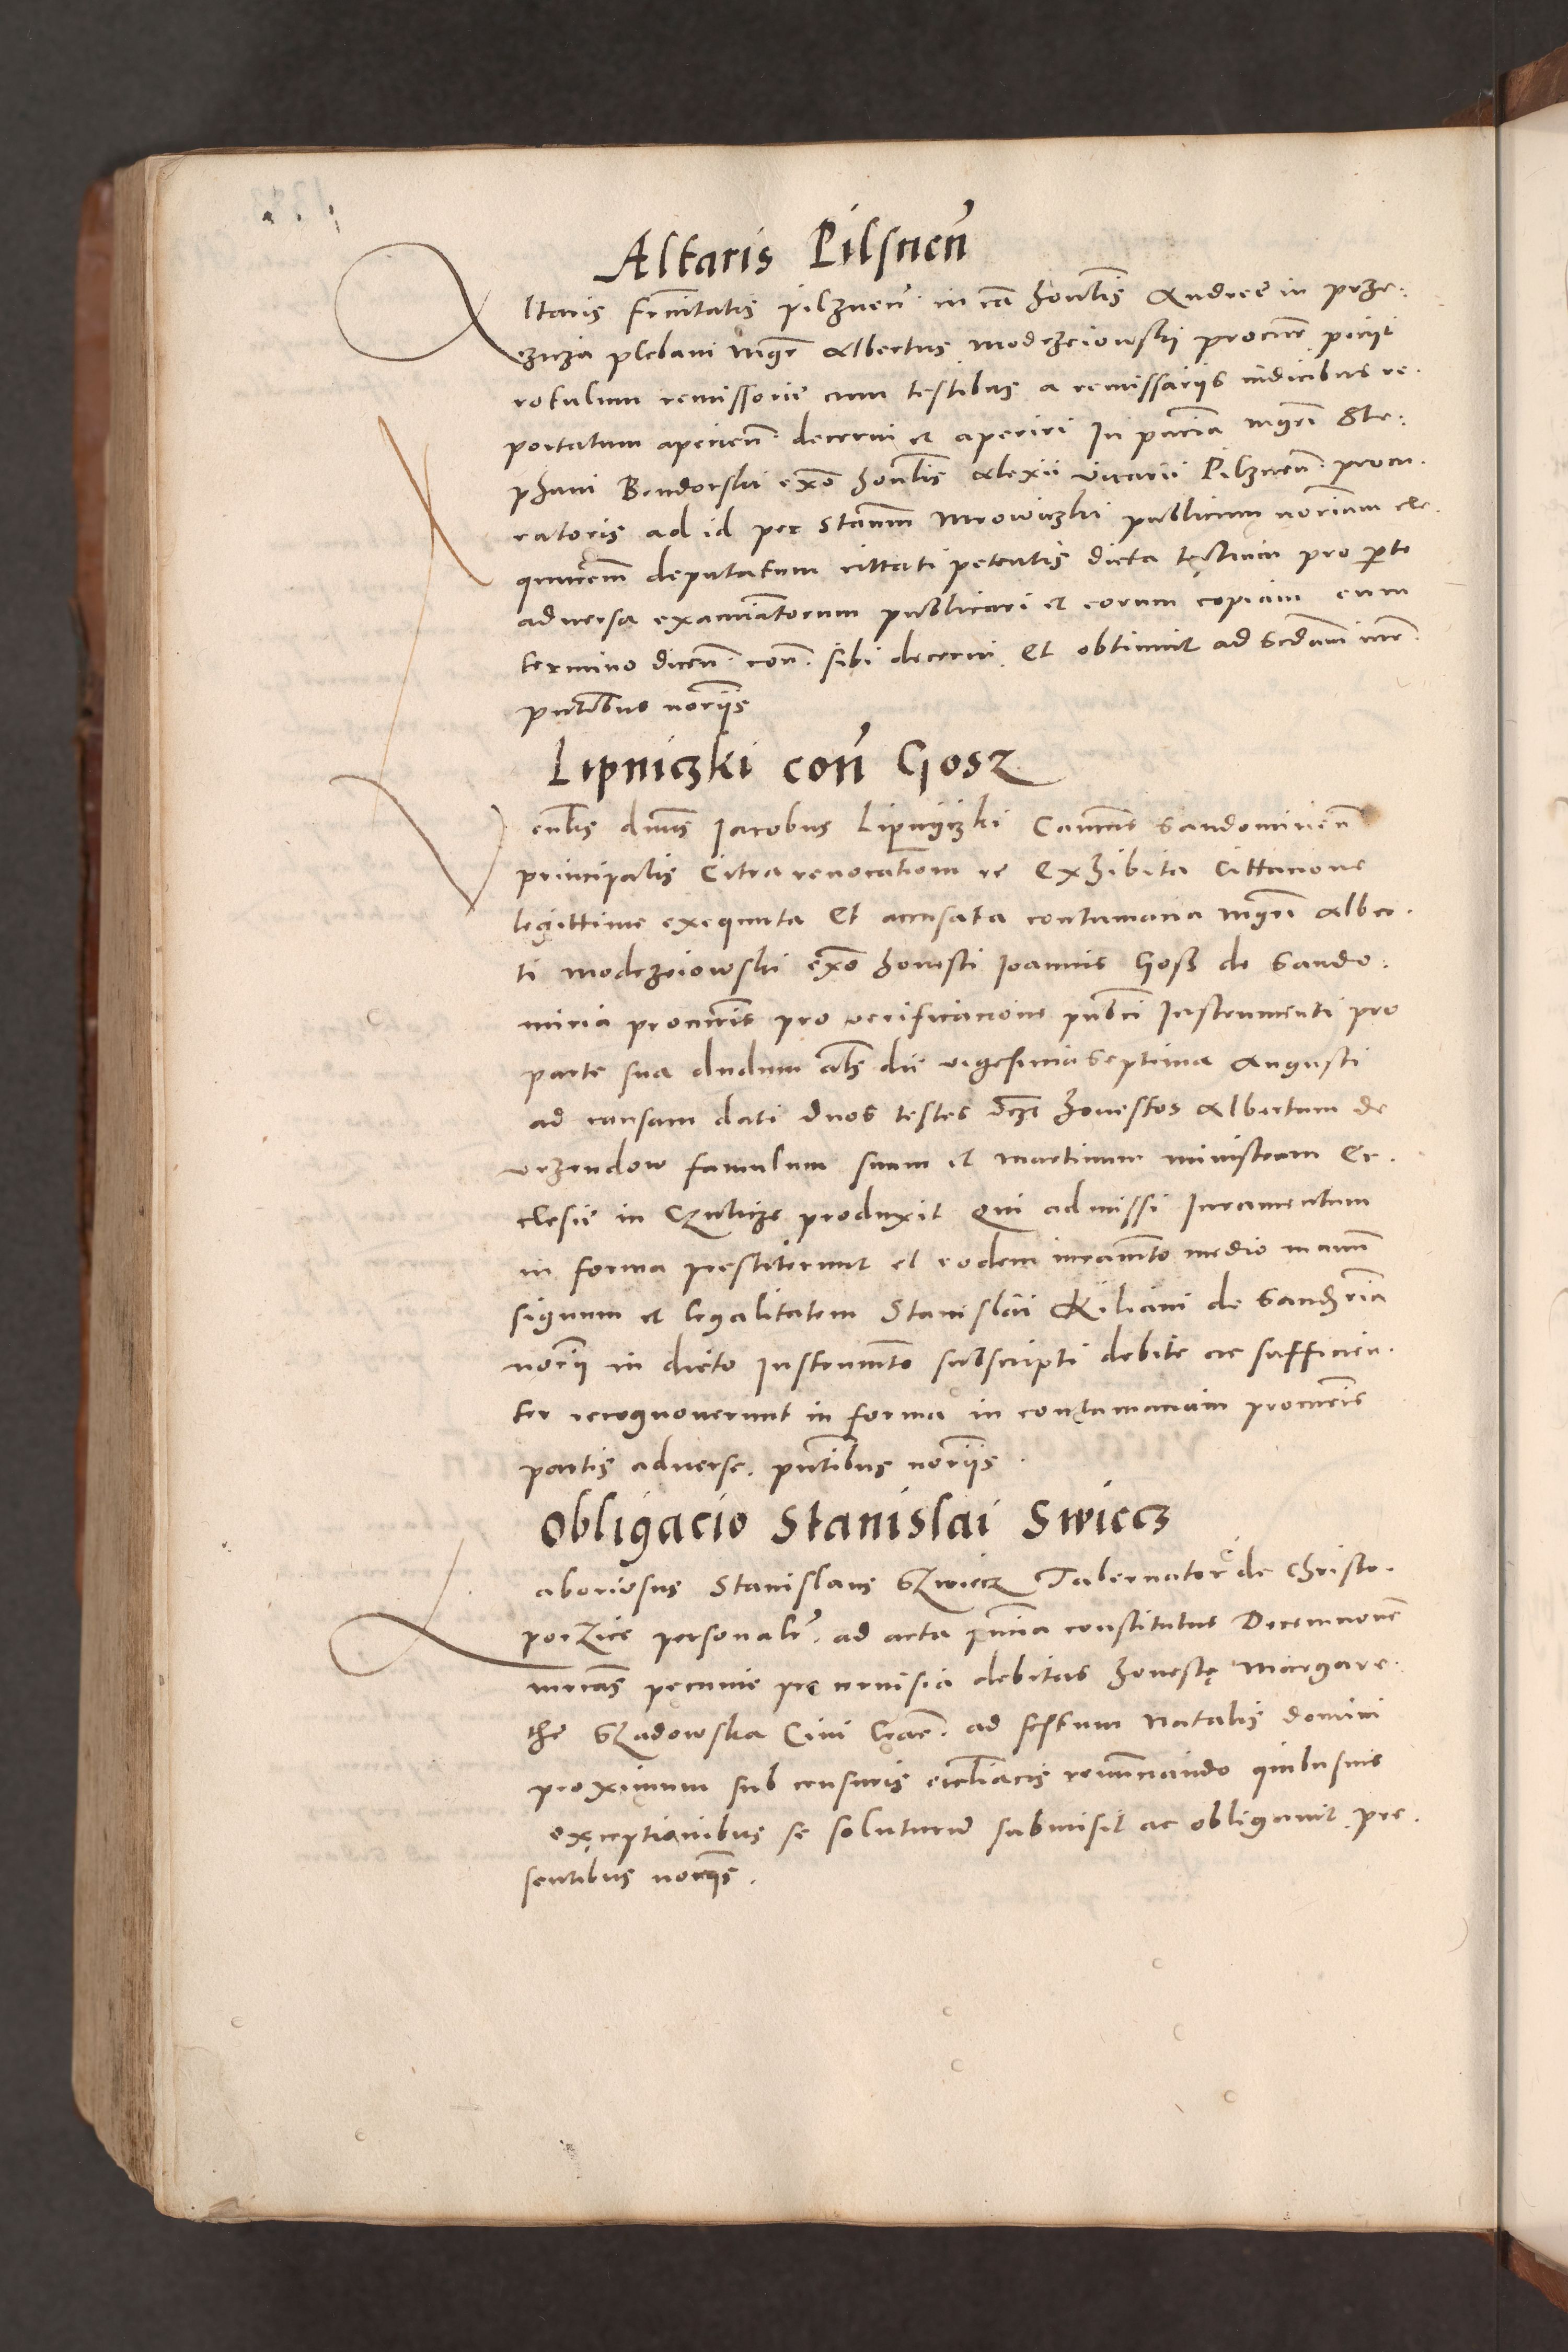 Altaris Pilsnen̄
Altaris frnitatis pilznen̄. in cā honlis Andree in prze:
cznza plebani mgr Albertus modrzeiowskÿ procurr peciit
rotulum remissorie cum testibus a remissariis iudicibus re.
portatum aperien̄. decerni et aperiri In pncia mgri Ste:
phani Bendorski exo honlis Alexii vicarii Pilznen̄. procu.
ratoris ad id per Stanm Mrowiczki publicum norium
deputatum cittati petentis dicta testium pro pte
adversa examinatorum publicari et eorum copiam cum
termino dicen̄. con̄. sibi decerni. Et obtinuit ad scdam iur.
pntibus noriis
Lipniczki con̄ Gosz
Venlis dnus Jacobus Lipnyczki Canucus Sandomirien̄
principalis Citra revocationem re Exhibita Cittacione
legittime exequuta Et accusata contumacia mgri Alber.
ti modrzeiowski exo honesti Joannis Gosz de Sando.
miria procuris pro verificacione publici Instrumenti pro
parte sua dudum als die vigesima septima Augusti
ad causam dati duos testes vcz honestos Albertum de
vrzendow famulum suum et martinum ministrum Ec.
clesie in Czulicze produxit Qui admissi Juramentum
in forma prestiterunt et eodem iuramto medio manum
signum et legalitatem Stanislai Kiliani de Sandria
norii in dicto Instrumto subscripti debite ac sufficien.
ter recognoverunt in forma in contumaciam procuris
partis adverse. pntibus noriis.
Obligacio Stanislai Swiecz
Laboriosus Stanislaus Szwiecz Tabernator de Christo.
porzice personalr. ad acta pncia constitutus Decemnovem
mrcas pecunie pro cervisia debitas honeste Margare.
the Szadowska Civi Crac. ad festum Natalis domini
proximum sub censuris ecclliacis renuncando quibusvis
exceptionibus se soluturum submisit ac obligavit. pre.
sentibus noriis.